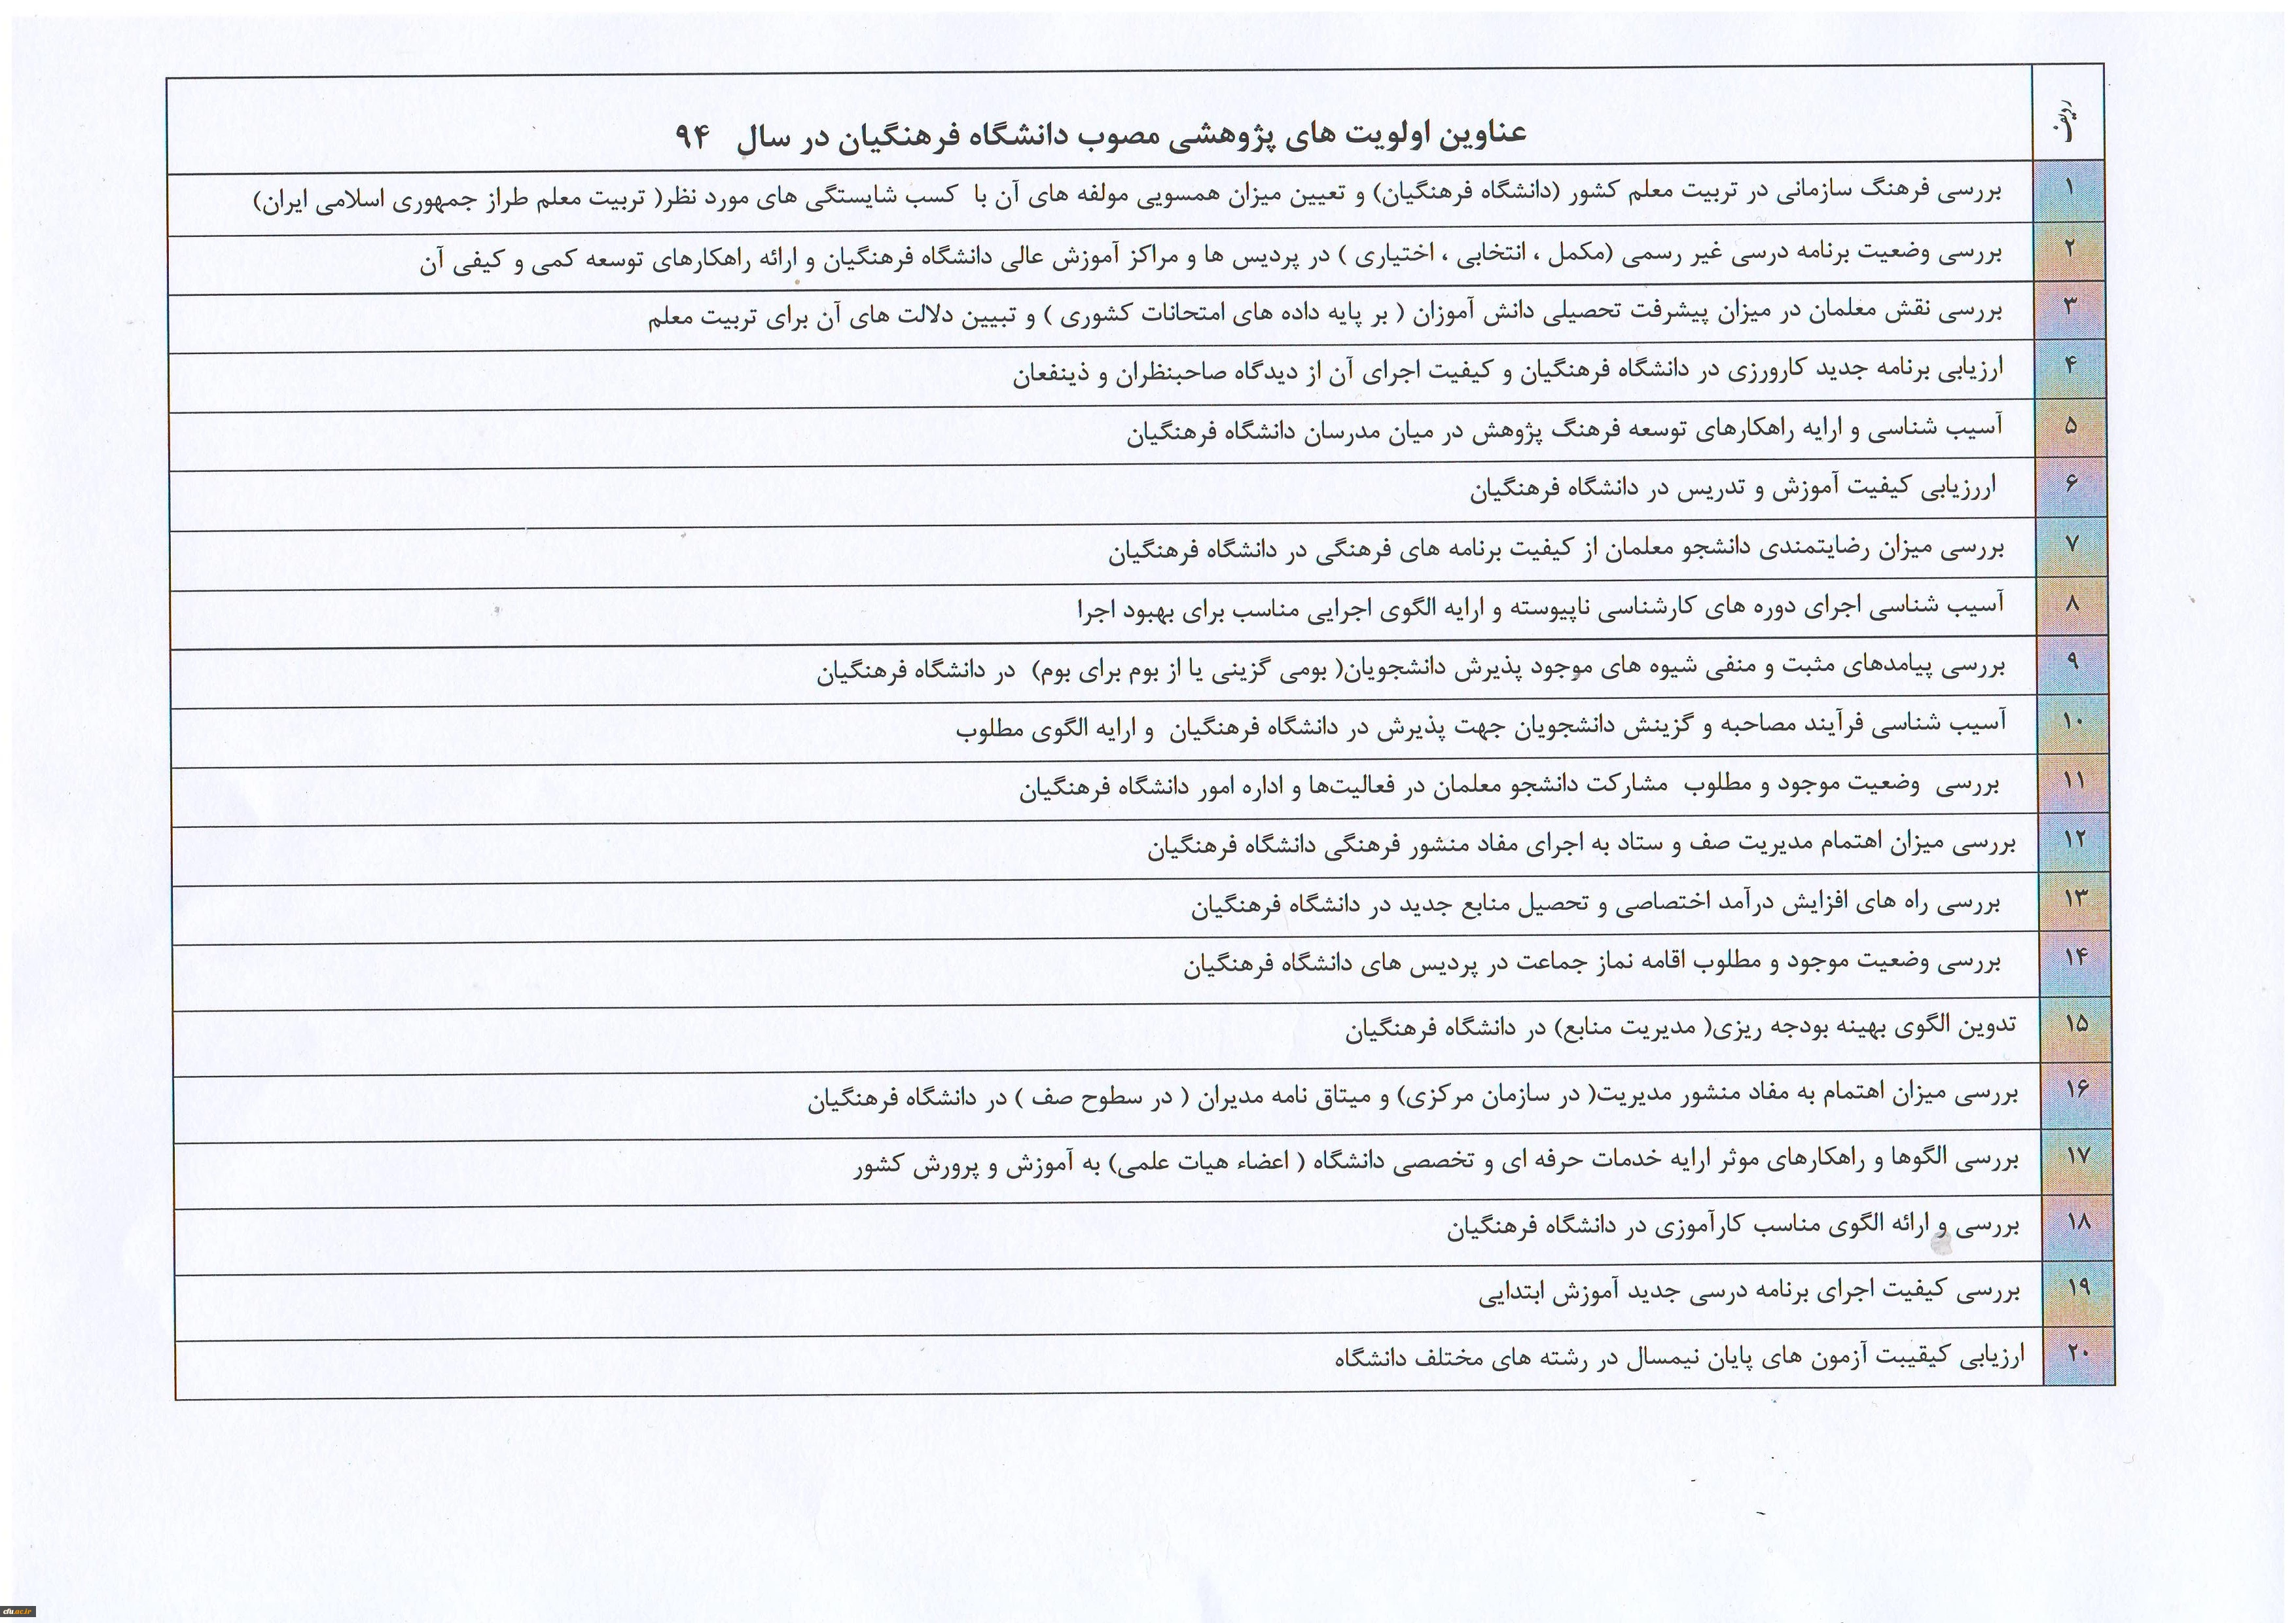 ردیف
عناوین اولویت های پژوهشی مصوب دانشگاه فرهنگیان در سال ۹۴
۱ بررسی فرهنگ سازمانی در تربیت معلم کشور (دانشگاه فرهنگیان) و تعیین میزان همسویی مولفه های آن با کسب شایستگی های مورد نظر( تربیت معلم طراز جمهوری اسلامی ایران)
۲ بررسی وضعیت برنامه درسی غیر رسمی (مکمل ، انتخابی ، اختیاری ) در پردیس ها و مراکز آموزش عالی دانشگاه فرهنگیان و ارائه راهکارهای توسعه کمی و کیفی آن
۳ بررسی نقش معلمان در میزان پیشرفت تحصیلی دانش آموزان ( بر پایه داده های امتحانات کشوری ) و تبیین دلالت های آن برای تربیت معلم
۴ ارزیابی برنامه جدید کارورزی در دانشگاه فرهنگیان و کیفیت اجرای آن از دیدگاه صاحبنظران و ذینفعان
۵ آسیب شناسی و ارایه راهکارهای توسعه فرهنگ پژوهش در میان مدرسان دانشگاه فرهنگیان
۶ اررزیابی کیفیت آموزش و تدریس در دانشگاه فرهنگیان
۷ بررسی میزان رضایتمندی دانشجو معلمان از کیفیت برنامه های فرهنگی در دانشگاه فرهنگیان
۸ آسیب شناسی اجرای دوره های کارشناسی ناپیوسته و ارایه الگوی اجرایی مناسب برای بهبود اجرا
۹ بررسی پیامدهای مثبت و منفی شیوه های موجود پذیرش دانشجویان( بومی گزینی یا از بوم برای بوم) در دانشگاه فرهنگیان
۱۰ آسیب شناسی فرآیند مصاحبه و گزینش دانشجویان جهت پذیرش در دانشگاه فرهنگیان و ارایه الگوی مطلوب
۱۱ بررسی وضعیت موجود و مطلوب مشارکت دانشجو معلمان در فعالیت‌ها و اداره امور دانشگاه فرهنگیان
۱۲ بررسی میزان اهتمام مدیریت صف و ستاد به اجرای مفاد منشور فرهنگی دانشگاه فرهنگیان
۱۳ بررسی راه های افزایش درآمد اختصاصی و تحصیل منابع جدید در دانشگاه فرهنگیان
۱۴ بررسی وضعیت موجود و مطلوب اقامه نماز جماعت در پردیس های دانشگاه فرهنگیان
۱۵ تدوین الگوی بهینه بودجه ریزی( مدیریت منابع) در دانشگاه فرهنگیان
۱۶ بررسی میزان اهتمام به مفاد منشور مدیریت( در سازمان مرکزی) و میتاق نامه مدیران ( در سطوح صف ) در دانشگاه فرهنگیان
۱۷ بررسی الگوها و راهکارهای موثر ارایه خدمات حرفه ای و تخصصی دانشگاه ( اعضاء هیات علمی) به آموزش و پرورش کشور
۱۸ بررسی و ارائه الگوی مناسب کارآموزی در دانشگاه فرهنگیان
۱۹ بررسی کیفیت اجرای برنامه درسی جدید آموزش ابتدایی
۲۰ ارزیابی کیقیبت آزمون های پایان نیمسال در رشته های مختلف دانشگاه
cfu.ac.ir